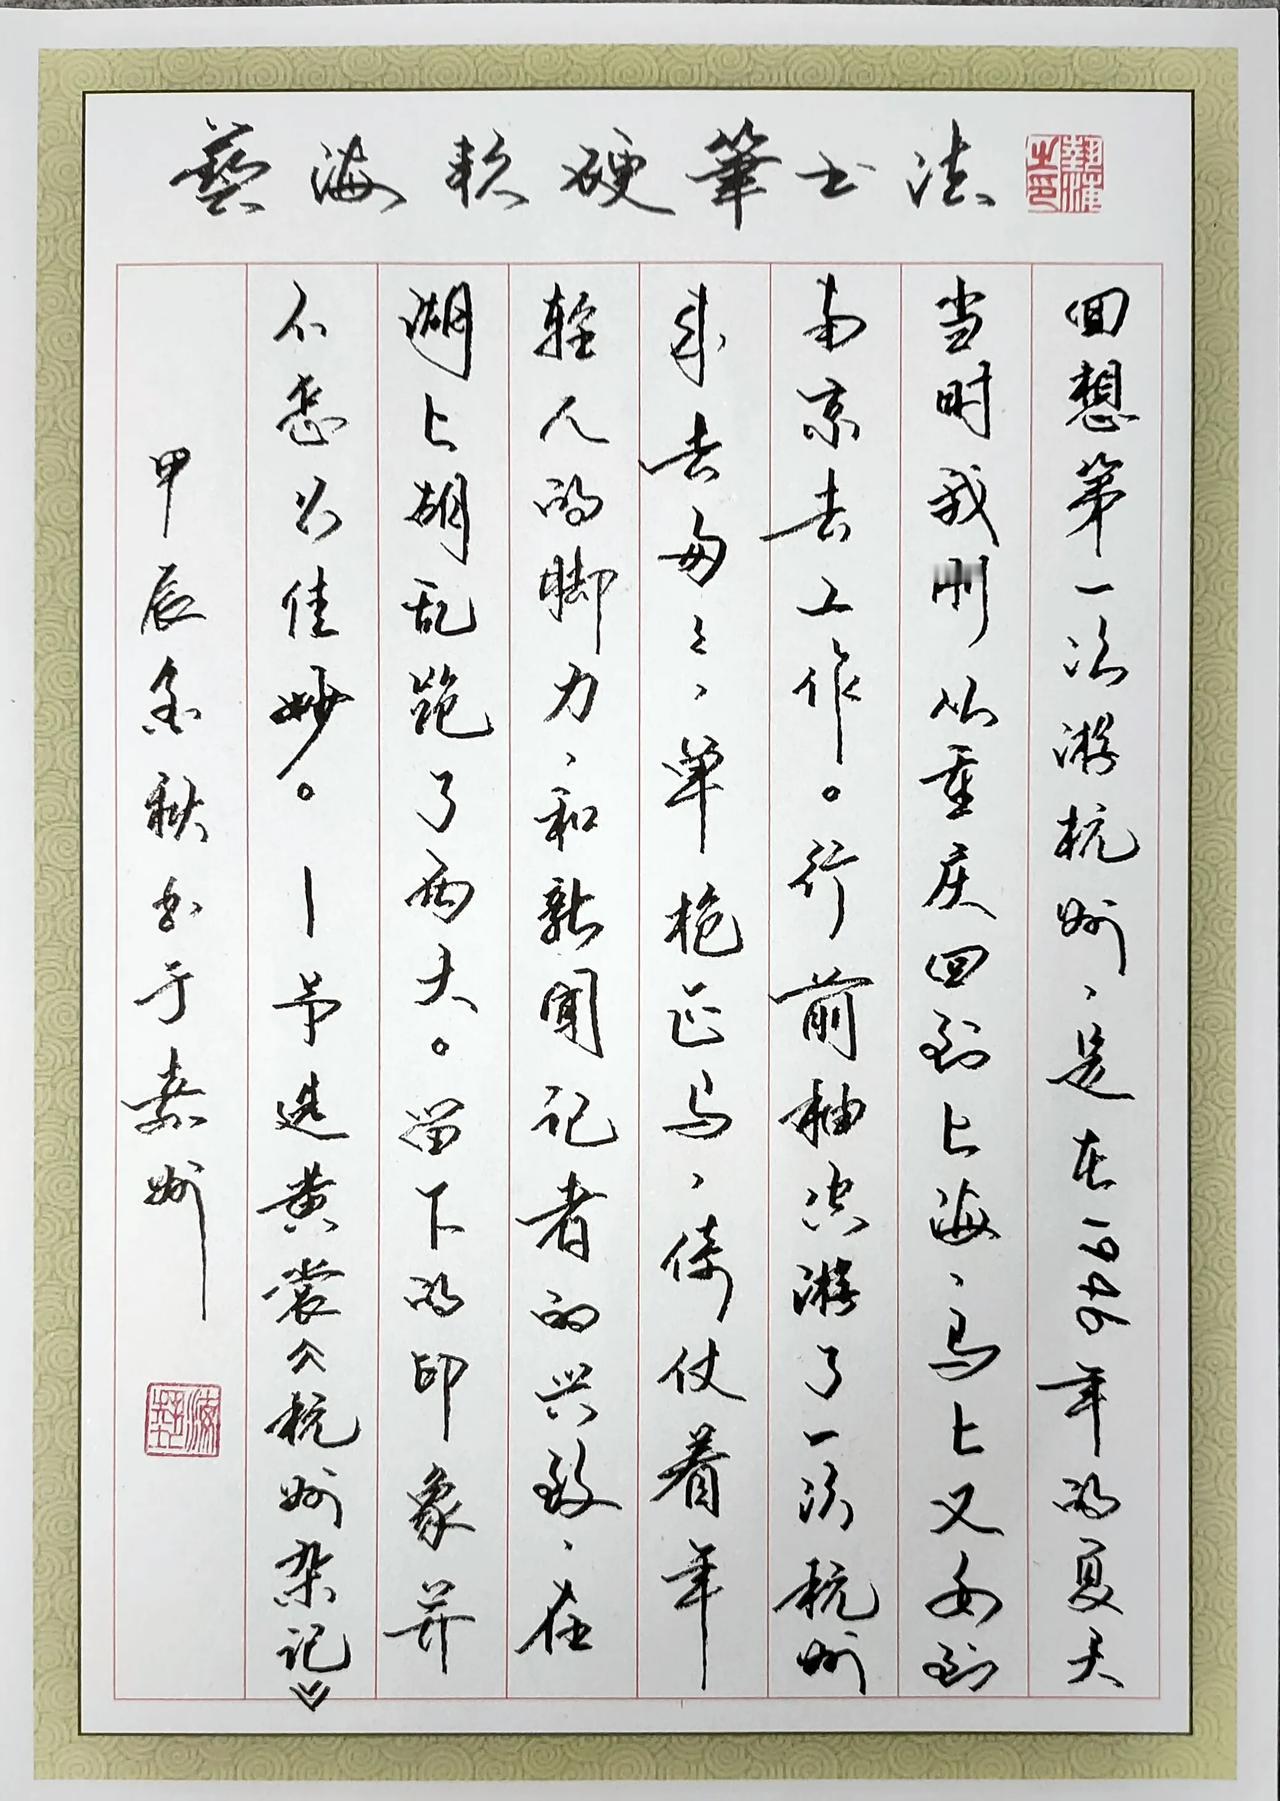 藝海软硬筆书法
回想第一次游杭州，是在1946年的夏天
当时我刚从重庆回到上海，马上又要到
南京去工作。行前抽空游了一次杭州
来去匆匆，单枪匹马，倚仗着年
轻人的脚力，和新闻记者的兴致，在
湖上胡乱跑了两天。留下的印象并
不怎么佳妙。—节选黄裳《杭州杂记》
甲辰金秋书于州